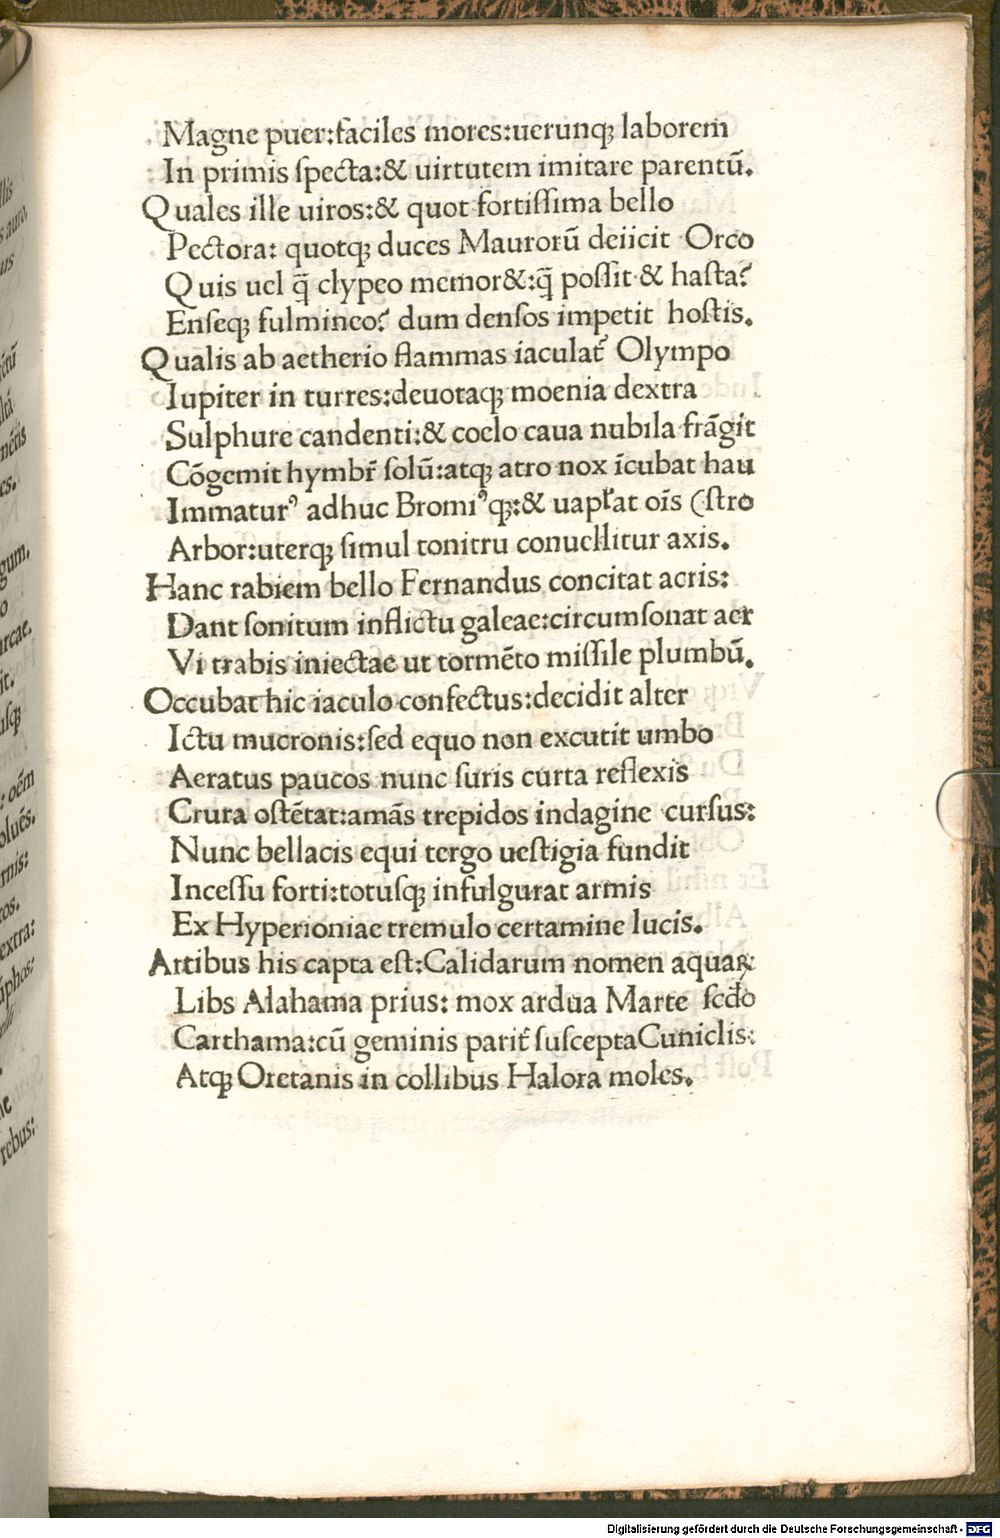 Magne puer:faciles mores:uerunqꝫ laborem
In primis specta:& uirtutem imitare parentū.
Quales ille uiros:& quot fortissima bello
Pectora: quotqꝫ duces Maurorū deiicit Orco
Quis uel q̄ clypeo memor&:q̄ possit & hasta?
Enseqꝫ fulmineo? dum densos impetit hostis.
Qualis ab aetherio flammas iaculat᷑ Olympo
Iupiter in turres:deuotaqꝫ moenia dextra
Sulphure candenti:& coelo caua nubila frāgit
Cōgemit hymbr̄ solū:atqꝫ atro nox īcubat hau
Immaturꝰ adhuc Bromiꝰqꝫ:& uapl̄at oīs (stro
Arbor:uterqꝫ simul tonitru conuellitur axis.
Hanc rabiem bello Fernandus concitat acris:
Dant sonitum inflictu galeae:circumsonat aer
Vi trabis iniectae ut tormēto missile plumbū.
Occubat hic iaculo confectus:decidit alter
Ictu mucronis:sed equo non excutit umbo
Aeratus paucos nunc suris curta reflexis
Crura ostētat:amās trepidos indagine cursus:
Nunc bellacis equi tergo uestigia fundit
Incessu forti:totusqꝫ infulgurat armis
Ex Hyperioniae tremulo certamine lucis.
Artibus his capta est:Calidarum nomen aquaꝝ:
Libs Alahama prius: mox ardua Marte sc̄do
Carthama:cū geminis parit᷑ suscepta Cuniclis:
Atqꝫ Oretanis in collibus Halora moles.
Digitalisierung gefördert durch die Deutsche Forschungsgemeinschaft - DFG